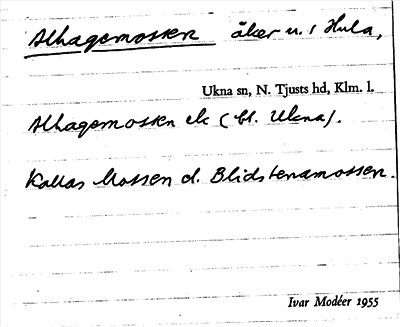 Alhagemossen åker u. i Hula,
Ukna sn, N. Tjusts hd, Klm. l.
Alhagemossen ek (bl. Ukna).
Kallas Mossen d. Blidstenamossen.
Ivar Modéer 1955